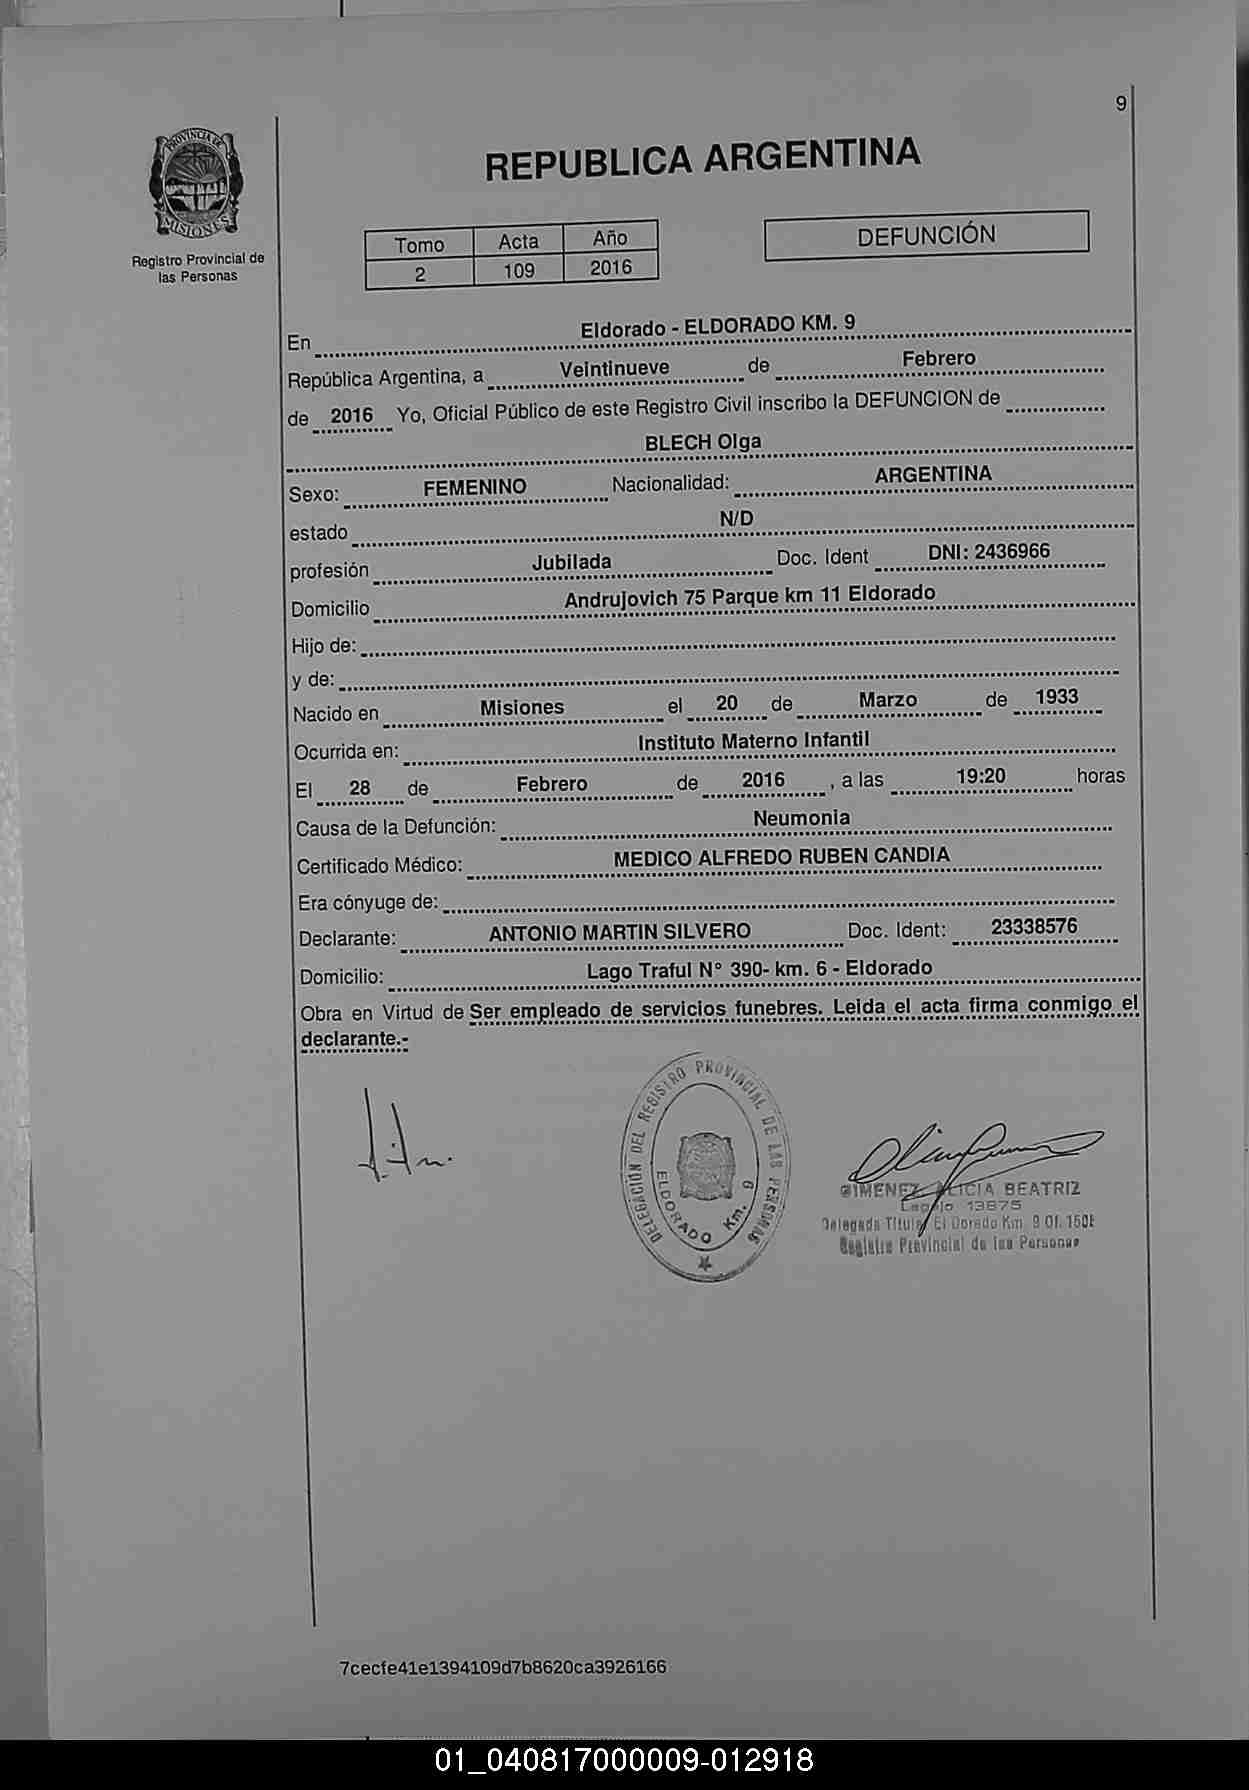 9
PROVINCIA DE
MISIONES
Registro Provincial de
las Personas
REPUBLICA ARGENTINA
Tomo Acta Año
2 109 2016
DEFUNCIÓN
En Eldorado - ELDORADO KM. 9
República Argentina, a Veintinueve de Febrero
de 2016 Yo, Oficial Público de este Registro Civil inscribo la DEFUNCION de
BLECH Olga
Sexo: FEMENINO Nacionalidad: ARGENTINA
estado N/D
profesión Jubilada Doc. Ident DNI: 2436966
Domicilio Andrujovich 75 Parque km 11 Eldorado
Hijo de:
y de:
Nacido en Misiones el 20 de Marzo de 1933
Ocurrida en: Instituto Materno Infantil
El 28 de Febrero de 2016 , a las 19:20 horas
Causa de la Defunción: Neumonia
Certificado Médico: MEDICO ALFREDO RUBEN CANDIA
Era cónyuge de:
Declarante: ANTONIO MARTIN SILVERO Doc. Ident: 23338576
Domicilio: Lago Traful N° 390- km. 6 - Eldorado
Obra en Virtud de Ser empleado de servicios funebres. Leida el acta firma conmigo el
declarante.-
DELEGACIÓN DEL REGISTRO PROVINCIAL DE LAS PERSONAS
ELDORADO Km. 9
GIMENEZ, ALICIA BEATRIZ
Legajo 13875
Delegada Titular El Dorado Km. 9 Of. 1501
Registro Provincial de las Personas
7cecfe41e1394109d7b8620ca3926166
01_040817000009-012918